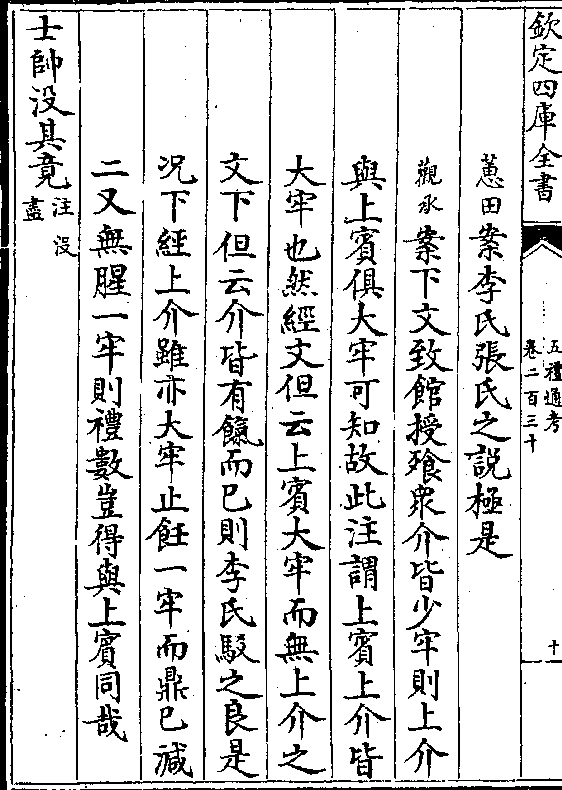 欽定四庫全書
五禮通考
卷二百三十
十
蕙田案李氏張氏之説極是
觀承案下文致館授飱衆介皆少牢則上介
與上賓俱大牢可知故此注謂上賓上介皆
大牢也然經文但云上賓大牢而無上介之
文下但云介皆有餼而已則李氏駮之良是
况下經上介雖亦大牢止飪一牢而鼎已減
二又無腥一牢則禮數豈得與上賓同哉
士帥没其竟注没
盡